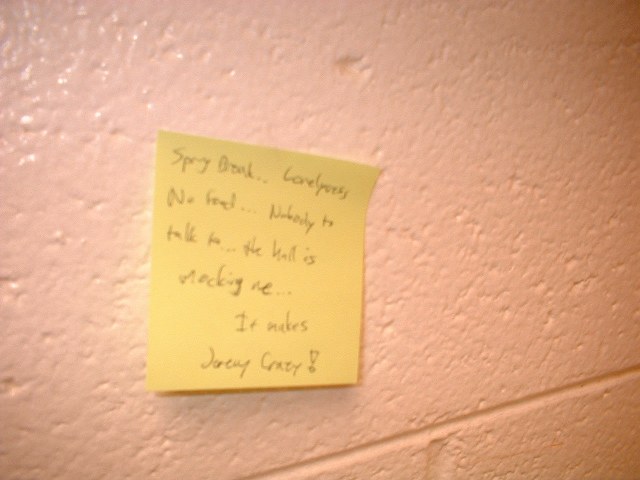 Spring Break... Lonelyness
No food... Nobody to
talk to... the hall is
mocking me...
It makes
Jeremy Crazy!